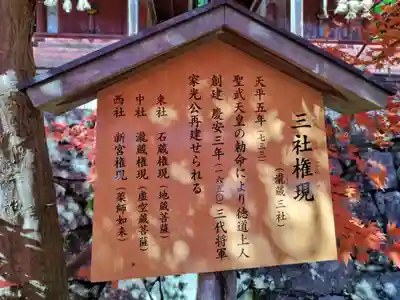 三社権現
(瀧蔵三社)
天平五年(七三三)
聖武天皇の勅命により徳道上人
創建 慶安三年(一六五〇)三代将軍
家光公再建せられる
東社 石蔵権現(地蔵菩薩)
中社 瀧蔵権現(虚空蔵菩薩)
西社 新宮権現(薬師如来)